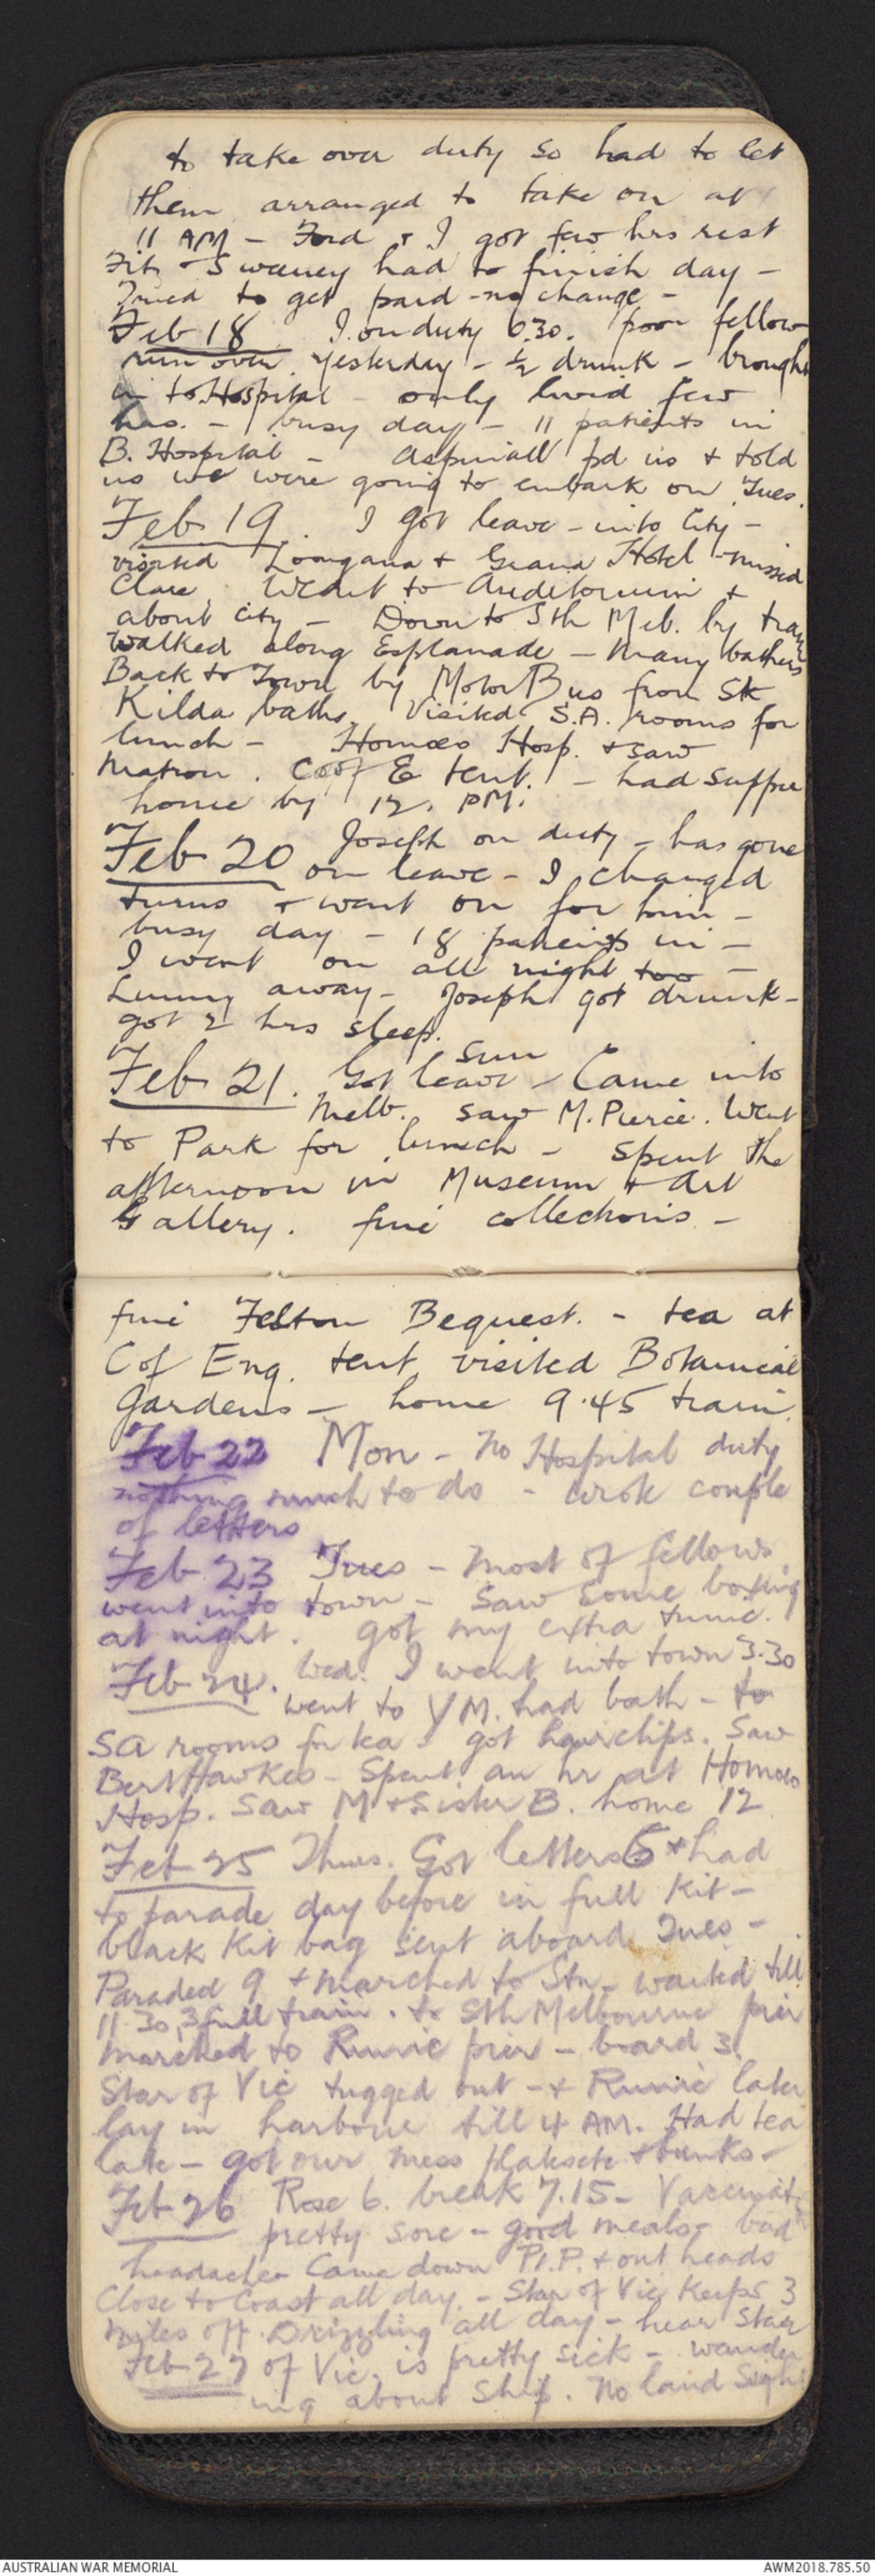 to take over duty so had to let
them arranged to take on at
11 AM - Ford + I got few hrs rest
Fitz + Sweeney had to finish day -
Tried to get paid - no change -
Feb 18 I on duty 6.30. poor fellow
run over yesterday - ½ drunk - brought
in to Hospital - only lived few
hrs. - busy day - 11 patients in
B. Hospital - Aspinall pd us + told
us we were going to embark on Tues.
Feb 19. I got leave - into City -
visited Loongana + Grand Hotel - missed
Clare. Went to Auditorium +
about city - Down to Sth Melb. by tram
Walked along Esplanade - Many bathers
Back to Town by Motor Bus from St
Kilda baths. Visited S.A. rooms for
lunch - Homoeo Hosp. + saw
Matron. C of E tent. - had supper
home by 12. PM.
Feb 20 Joseph on duty - has gone
on leave - I changed
turns + went on for him -
busy day - 18 patients in -
I went on all night too -
away - Joseph got drunk -
got 2 hrs sleep.
Sun
Feb 21. Got leave - Came into
Melb. saw M. Pierce. Went
to Park for lunch - spent the
afternoon in Museum + Art
Gallery. fine collections -
fine Felton Bequest. - tea at
C of Eng. tent visited Botanical
Gardens - home 9.45 train.
Feb 22 Mon - No Hospital duty
nothing much to do - wrote couple
of letters
Feb 23 Tues - Most of fellows
went into town - Saw some boxing
at night. got my extra tunic.
Feb 24. Wed. I went into town 3.30
went to YM. had bath - to
SA rooms for tea - got hairclips. Saw
Bert Hawkes - Spent an hr at Homoeo
Hosp. Saw M + Sister B. home 12
Feb 25 Thurs. Got letters 6 + had
to parade day before in full Kit -
black Kit bag sent aboard Tues -
Paraded 9 + marched to Stn - waited till
11.30, 3 full train. to Sth Melbourne pier
Marched to Runic pier - board 3.
Star of Vic tugged out - + Runic later
lay in harbour till 4 AM. Had tea
late - got our mess plates etc + bunks -
Feb 26 Rose 6. break 7.15 - Vaccinatn
pretty sore - good meals - bad
headache - Came down Pt. P. + out heads
Close to Coast all day. - Star of Vic Keeps 3
miles off. Drizzling all day - hear Star
Feb 27 of Vic. is pretty sick - wander
ing about Ship. No land Sight
AUSTRALIAN WAR MEMORIAL
AWM2018.785.50